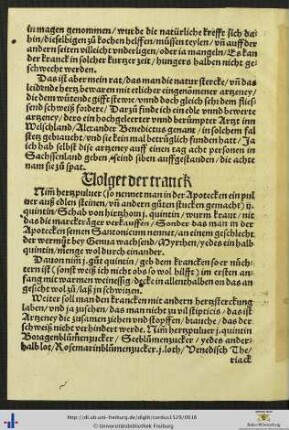 im magen genommen / wurde die natürliche krefft sich da
hin / dieselbigen zů kochen helffen / müssen teylen / vñ auff der
andern seiten villeicht vnderligen / oder ia mangeln / Es kan
der kranck in solcher kurtzer zeit / hungers halben nicht ge-
schwecht werden.
Das ist aber mein rat / das man die natur stercke / vñ das
leidend hertz bewaren mit etlicher eingenom̄ner artzeney /
die dem wütende gifft stewr vnnd doch gleich sehr dem flies-
send schweiß fordere / Darzů finde ich ein edle vnnd bewerte
artzeney / dero ein hochgeleerter vnnd berümpter Artzt inn
Welschland / Alexander Benedictus genant / in solchem fal
stetz gebraucht / vnd sie kein mal betrüglich funden hatt / Ja
ich hab selbst dise artzney auff einen tag acht personen in
Sachssenland geben / seind siben auffgestanden / die acht
nam sie zů spat.
Volget der tranck
Nim̄ hertzpuluer (so nennet man in der Apotecken ein pul
uer auß edlen steinen / vñ andern gůten stucken gemacht) ij.
quintin / Schab von hirtzhorn j. quintin / wurm kraut / nit
das die marcktträger verkauffen / Sonder das man in der
Apotecken semen Santonicum nennet / an einem geschlecht
der wermůt bey Genua wachsend / Myrrhen / yedes ein halb
quintin / menge wol durch einander.
Dauon nim̄ j. gůt quintin / geb dem krancken so er nüch-
tern ist (sonst weiß ich nicht obs so wol hilfft) im ersten an-
fang mit warmen weinessig / decke in allenthalben on das an
gesicht wol zů / laß jn schwitzen.
Weiter soll man den krancken mit andern hertzsterckung
laben / vnd ja zusehen / das man nicht zů vil stipticis / das ist
Artzeney die zusamen ziehen vnd stopffen / brauche / das der
schweiß nicht verhindert werde. Nim̄ hertzpuluer j. quintin
Boragenblůmenzucker / Seeblůmenzucker / yedes ander-
halb lot / Rosemarinblůmenzucker j. loth / Venedisch The-
riack
http://dl.ub.uni-freiburg.de/diglit/cordus1529/0010
© Universitätsbibliothek Freiburg